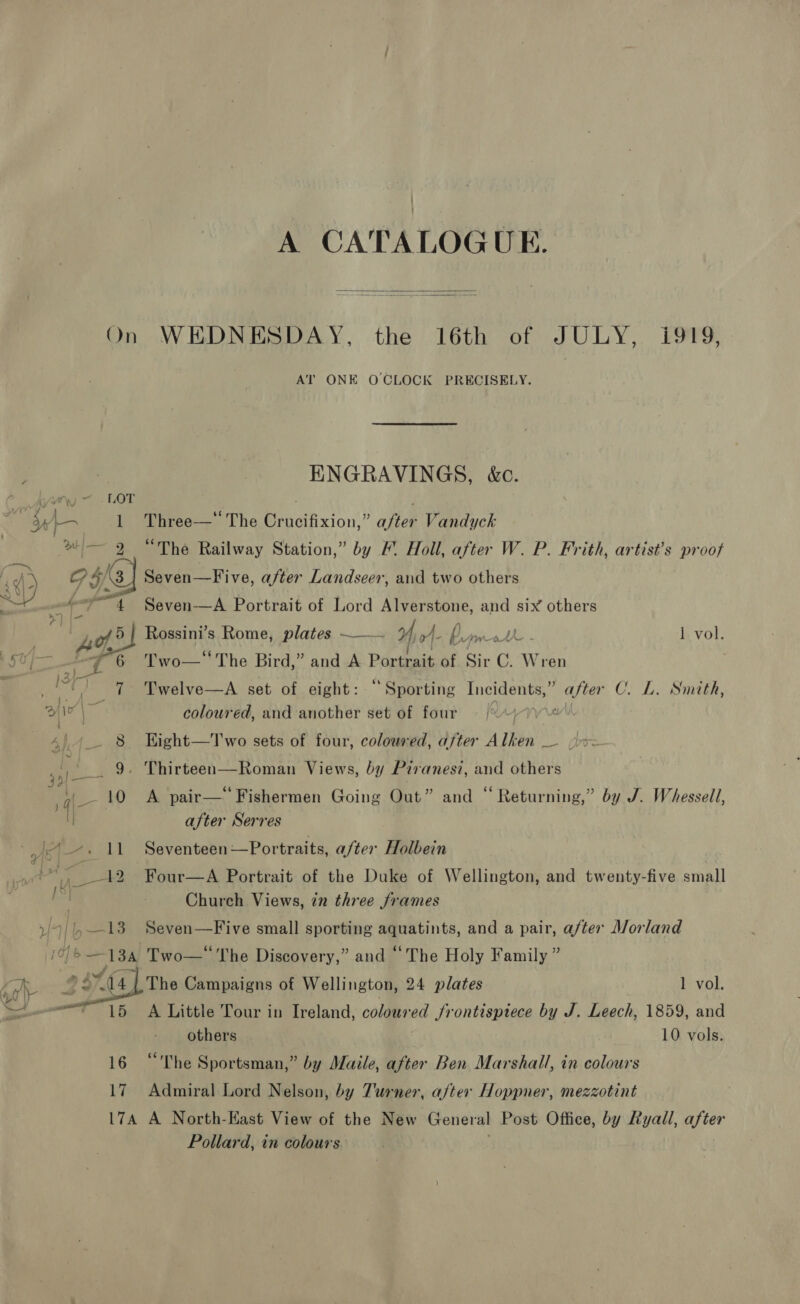 A CATALOGUE.
On WEDNESDAY, the 16th of JULY, 1919,
AT ONE O'CLOCK PRECISELY.
ENGRAVINGS, &c.
LOT
1 Three—“The Crucifixion,” after Vandyck
2 “The Railway Station,” by F. Holl, after W. P. Frith, artist's proof
3 Seven—Five, after Landseer, and two others
4 Seven—A Portrait of Lord Alverstone, and six others
5 Rossini's Rome, plates 1 vol.
6 Two—“The Bird,” and A Portrait of Sir C. Wren
7 Twelve—A set of eight: “Sporting Incidents,” after C. L. Smith,
coloured, and another set of four
8 Eight—Two sets of four, coloured, after Alken
9 Thirteen—Roman Views, by Piranesi, and others
10 A pair—“Fishermen Going Out” and “Returning,” by J. Whessell,
after Serres
11 Seventeen—Portraits, after Holbein
12 Four—A Portrait of the Duke of Wellington, and twenty-five small
Church Views, in three frames
13 Seven—Five small sporting aquatints, and a pair, after Morland
13A Two—“The Discovery,” and “The Holy Family”
14 The Campaigns of Wellington, 24 plates 1 vol.
15 A Little Tour in Ireland, coloured frontispiece by J. Leech, 1859, and
others 10 vols.
16 “The Sportsman,” by Maile, after Ben Marshall, in colours
17 Admiral Lord Nelson, by Turner, after Hoppner, mezzotint
17A A North-East View of the New General Post Office, by Ryall, after
Pollard, in colours